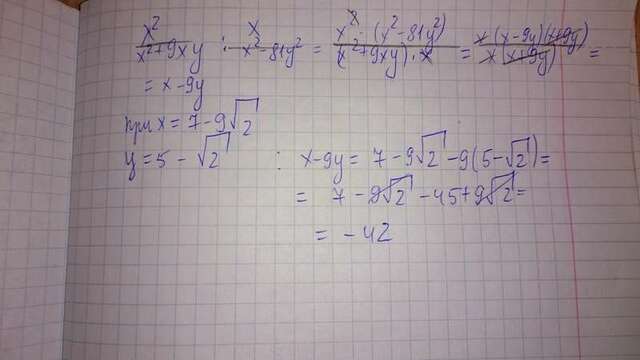 x²/(x²+9xy) : x/(x²-81y²) = x²·(x²-81y²)/((x²+9xy)·x) = x(x-9y)(x+9y)/(x(x+9y)) =
= x-9y
при x = 7-9√2
y = 5 - √2 : x-9y = 7-9√2-9(5-√2) =
= 7 - 9√2 - 45+9√2 =
= -42